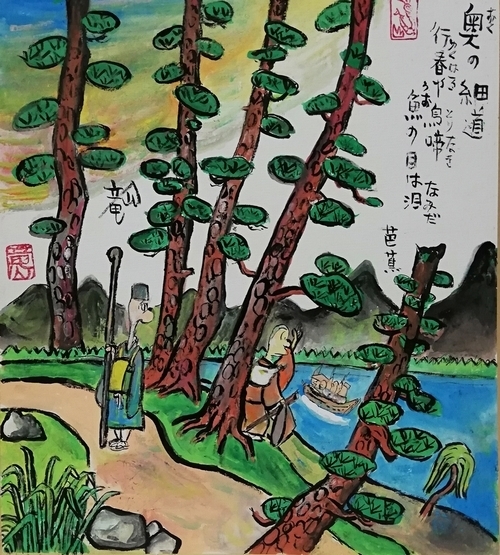 おく
奥の細道
ゆくはる とりなき
行春や鳥啼
うお なみだ
魚の目は泪
芭蕉
竜